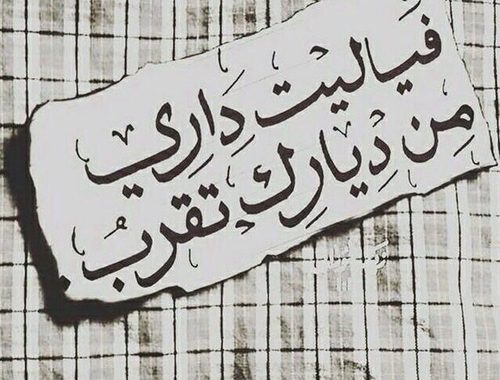 فياليت دَارِي
مِن دِيارِك تقربُ